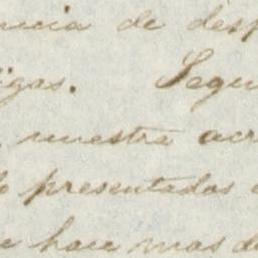 ncia de desp
igas. Segu
nuestra acr
presentados
e hace mas de